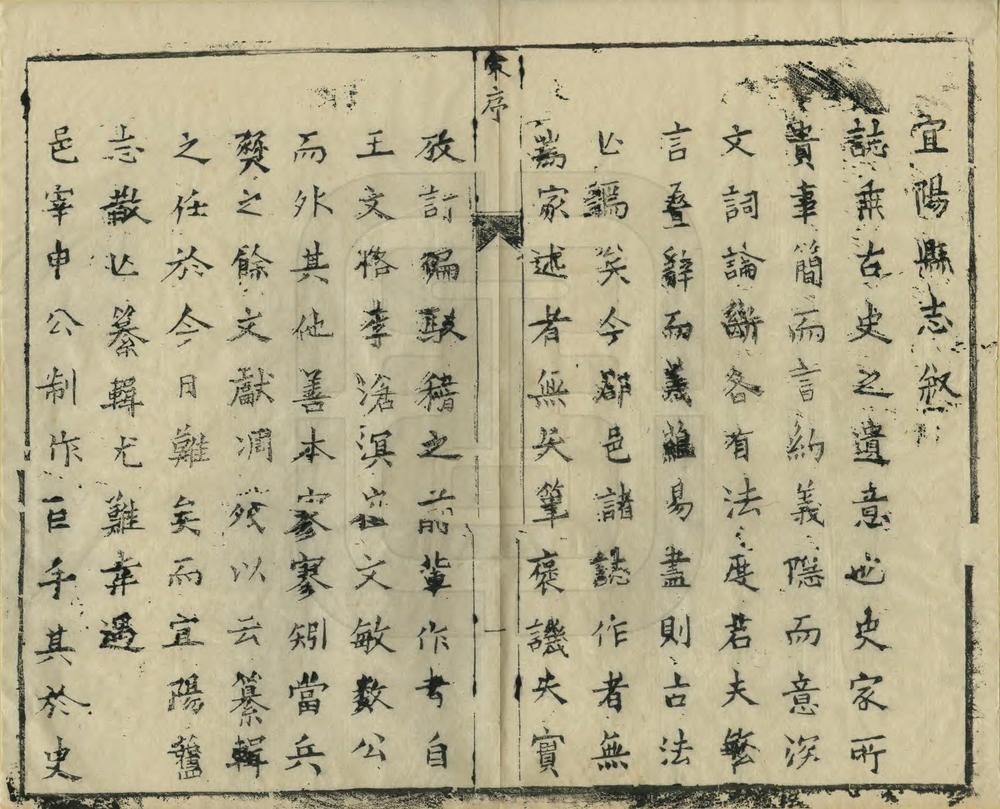 宜陽縣志敘
誌乘古史之遺意也史家所
貴事簡而言約義隱而意深
文詞論斷各有法度若夫繁
言疊辭而義蘊易盡則古法
亡矣今郡邑諸誌作者無
耑家述者無矢筆褒譏失實
宋序
一
攷訂編駁稽之前輩作者自
王文恪李滄溟文敏數公
而外其他善本寥寥矧當兵
燹之餘文獻凋殘以云纂輯
之任於今日難矣而宜陽舊
志散亡纂輯尤難幸遇
邑宰申公制作巨手其於史